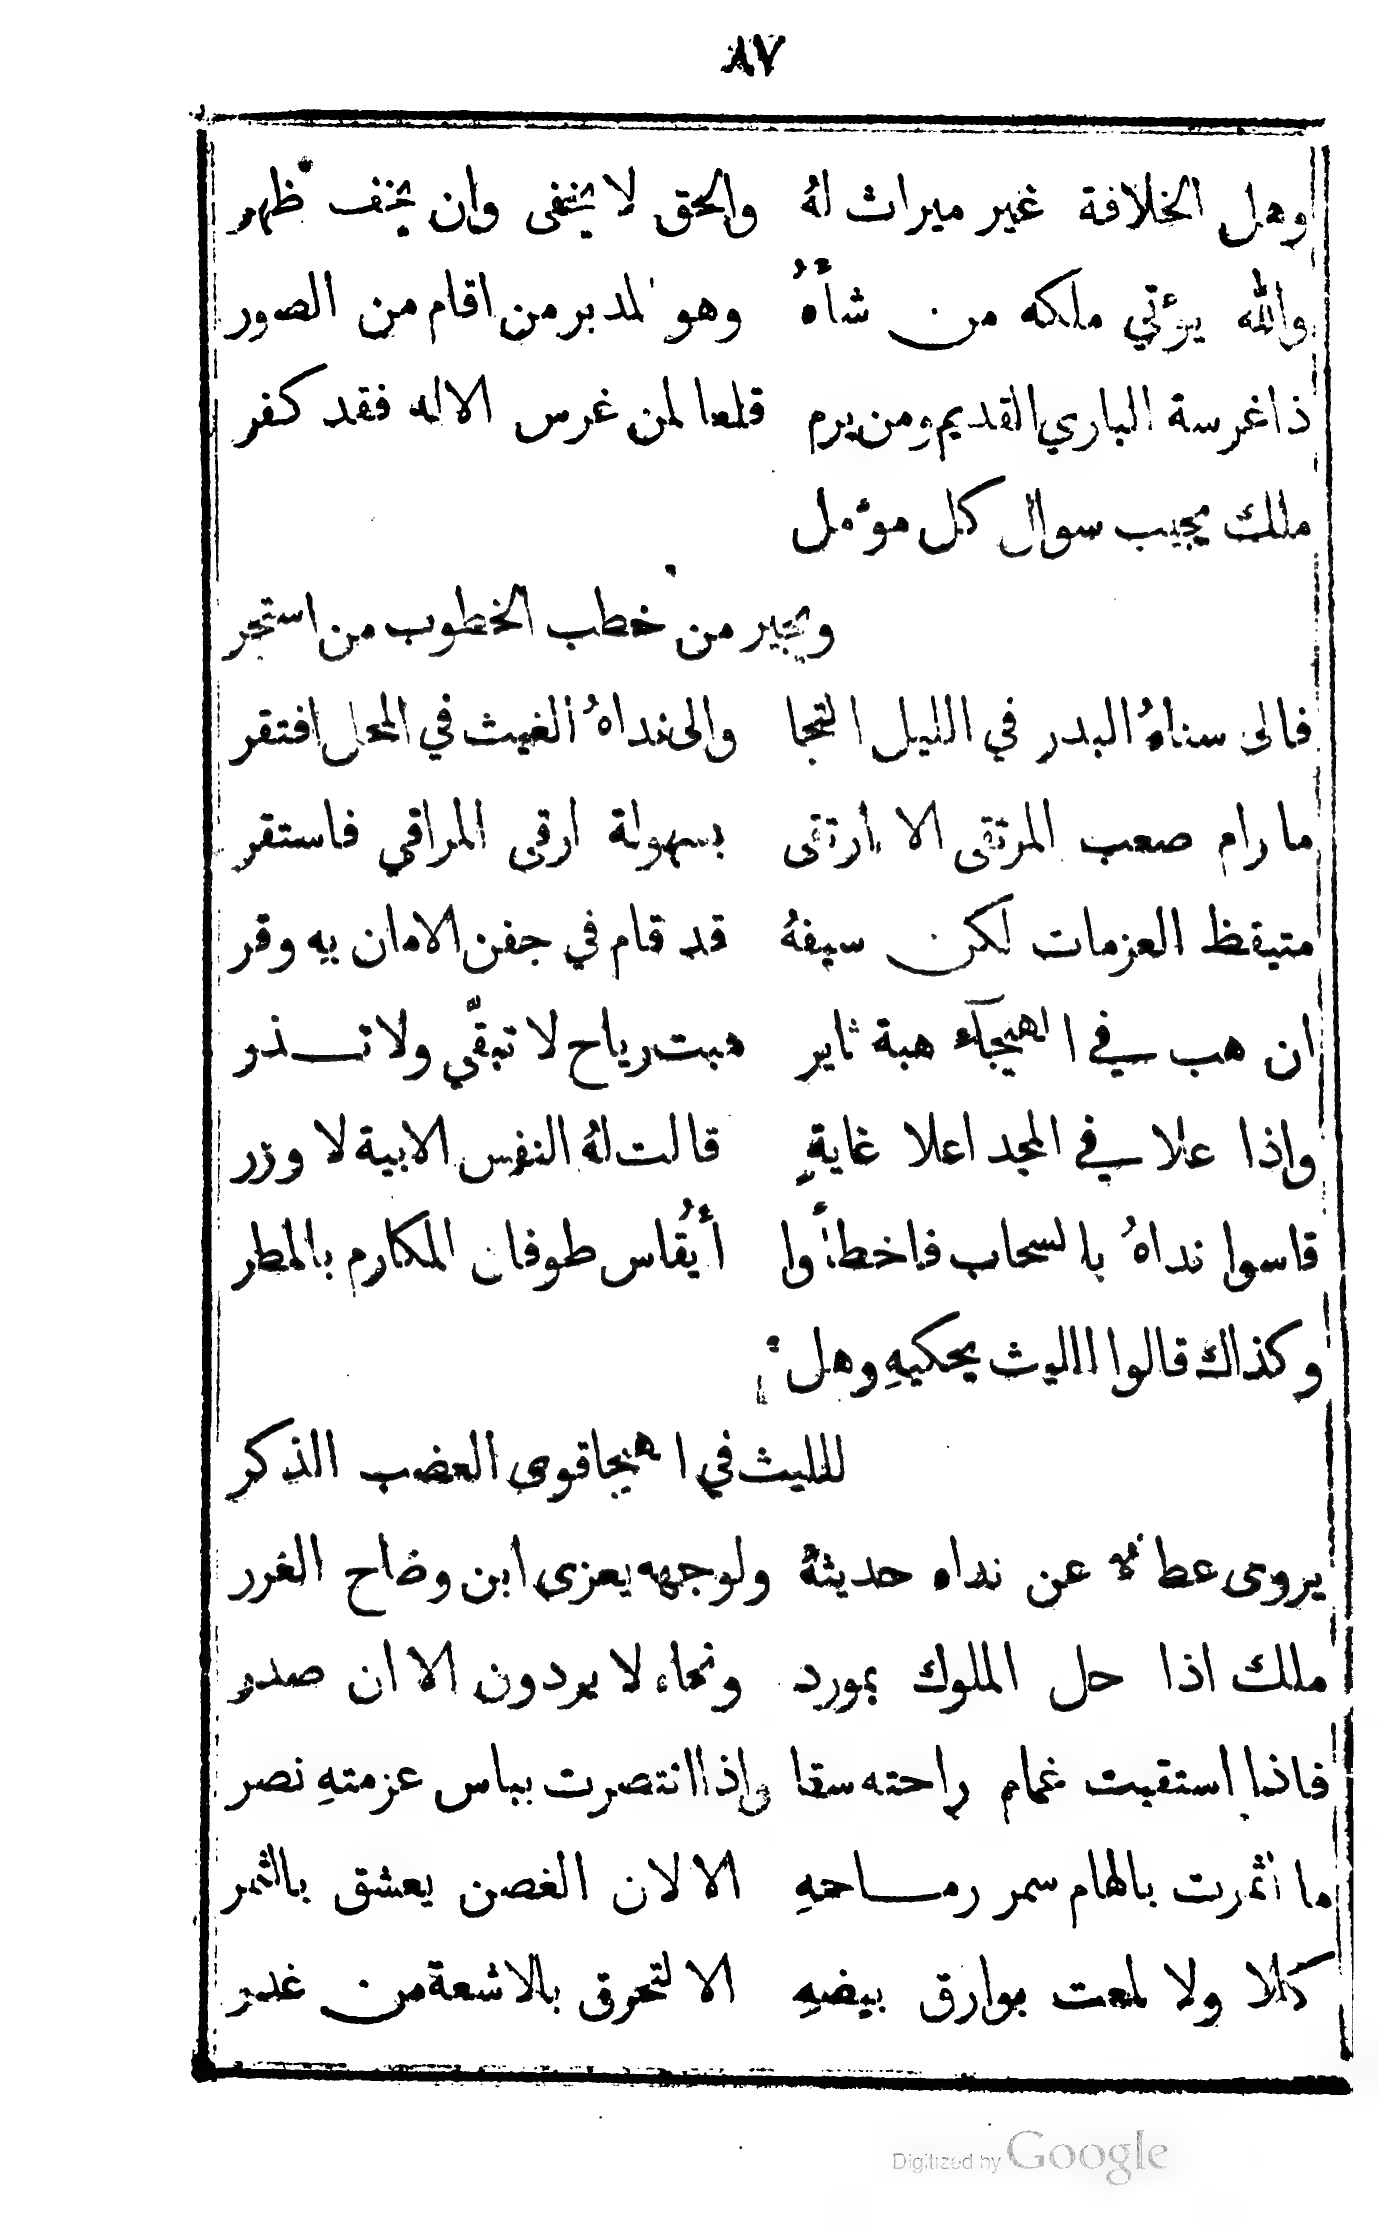 ٨٧
وهل الخلافة غير ميراث لهُ والحق لا يختفى وان يخف ظهر
والله يؤتي ملكه من شأهُ وهو المدبر من اقام من الصور
ذا غرسة الباري القديم ومن يرم قلعا لمن غرس الاله فقد كفر
ملك مجيب سوال كل مؤمل
ويجير من خطب الخطوب من استجر
فالى سناهُ البدر في الليل التجا والى نداهُ الغيث في المحل افتقر
ما رام صعب المرتقى الا ارتقى بسهولة ارقى المراقي فاستقر
متيقظ العزمات لكن سيفهُ قد قام في جفن الامان به وقر
ان هب في الهيجآء هبة ثاير هبت رياح لا تبقّي ولا تـــذر
واذا علا في المجد اعلا غايةٍ قالت لهُ النفس الابية لا وزر
قاسوا نداهُ بالسحاب فاخطأوا أيُقاس طوفان المكارم بالمطر
وكذاك قالوا الليث يحكيهِ وهل
لليث في الهيجا قوى العضب الذكر
يروى عطاءُ عن نداه حديثهُ ولوجهه يعزى ابن وضاح الغرر
ملك اذا حل الملوك بمورد ونحاه لا يردون الا ان صدر
فاذا استقيت غمام راحته سقا واذا انتصرت بباس عزمتهِ نصر
ما اثمرت بالهام سمر رمـــاحهِ الا لان الغصن يعشق بالثمر
كلا ولا لمعت بوارق بيضهِ الا لتحرق بالاشعة من غدر
Digitized by Google